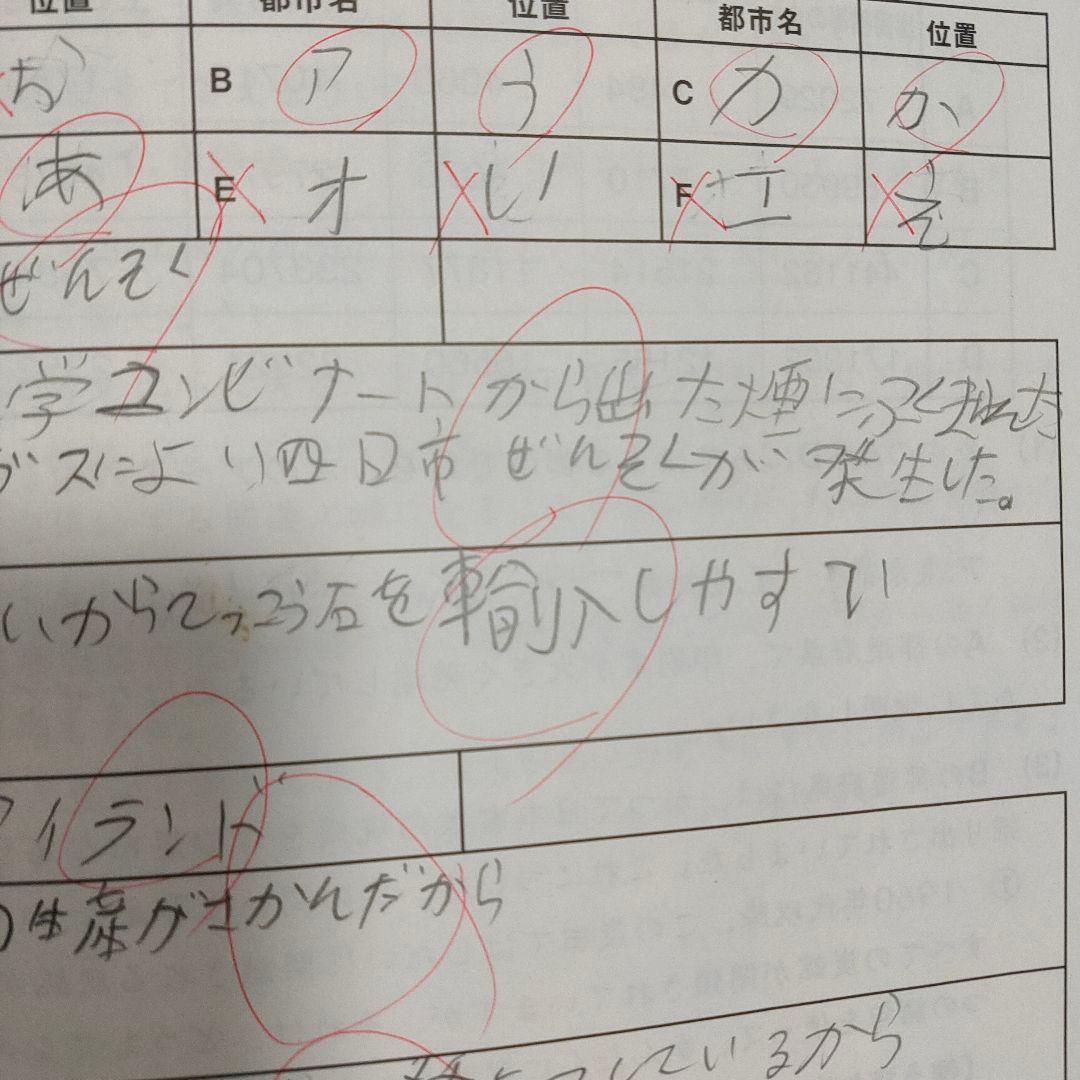 位置 都市名 位置 都市名 位置
お B ア う C カ か
あ E オ い F エ え
ぜんそく
学コンビナートから出た煙にふくまれた
ガスにより四日市ぜんそくが発生した。
いからてっこう石を輸入しやすい
アイランド
の生産がさかんだから
しているから